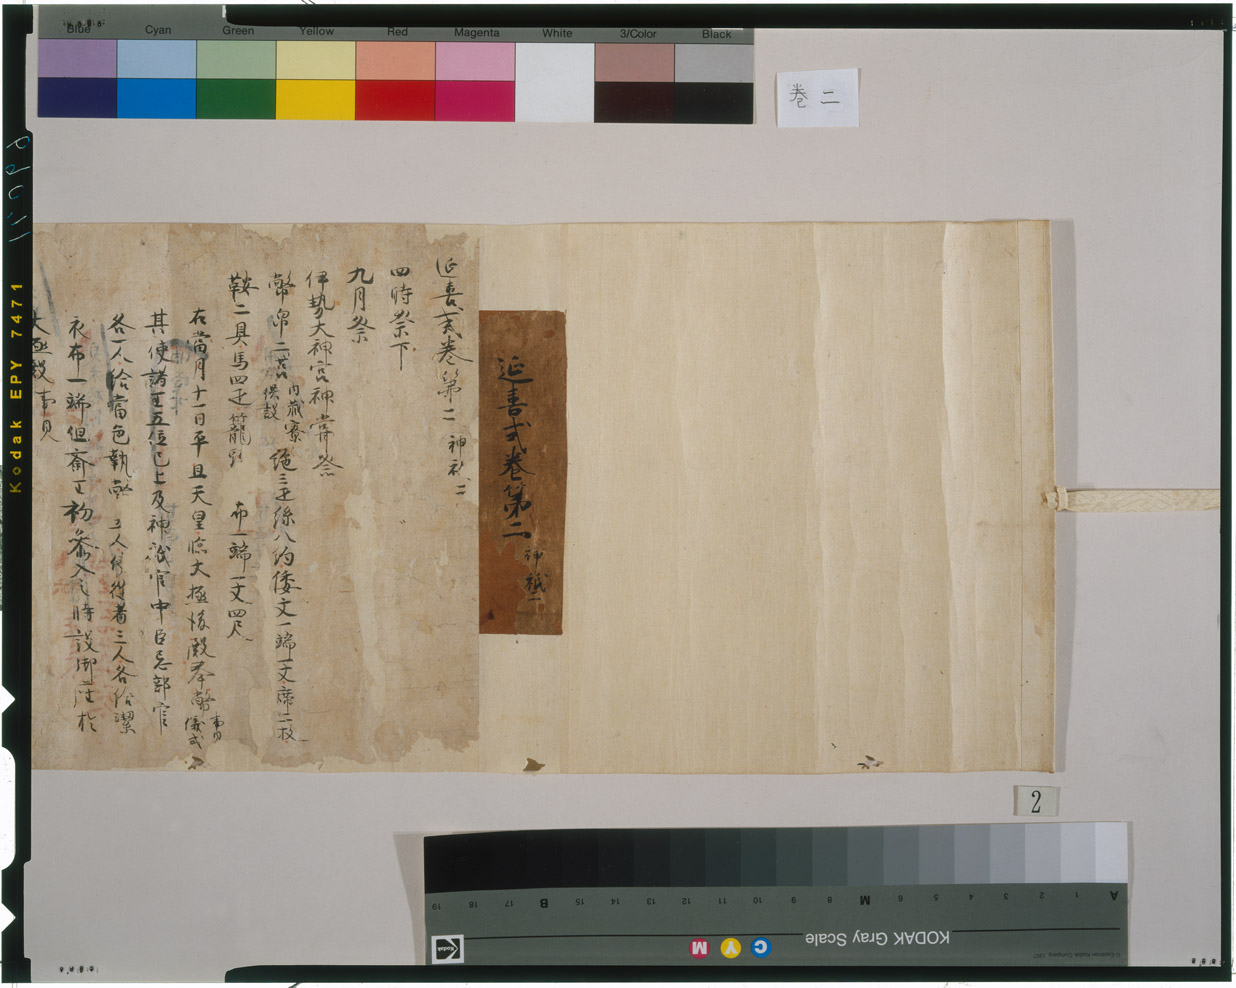 Blue Cyan Green Yellow Red Magenta White 3/Color Black
卷二
延喜式卷第二 神祇二
延喜式卷第二 神祇二
四時祭下
九月祭
伊勢大神宮神甞祭
幣帛二笥 内藏寮供設 絁三疋絲八約倭文一端一丈席二枚
鞍二具馬四疋 籠頭 布一端一丈四尺
右當月十一日平旦天皇臨大極後殿奉幣 事見儀式
其使諸王五位已上及神祇官中臣忌部官
各一人給當色執幣五人傔從者三人各給潔
衣布一端但齋王初參入之時設御座於
大極殿事見
2
Kodak EPY 7471
KODAK Gray Scale
C Y M
Kodak
A 1 2 3 4 5 6 M 8 9 10 11 12 13 14 15 B 17 18 19